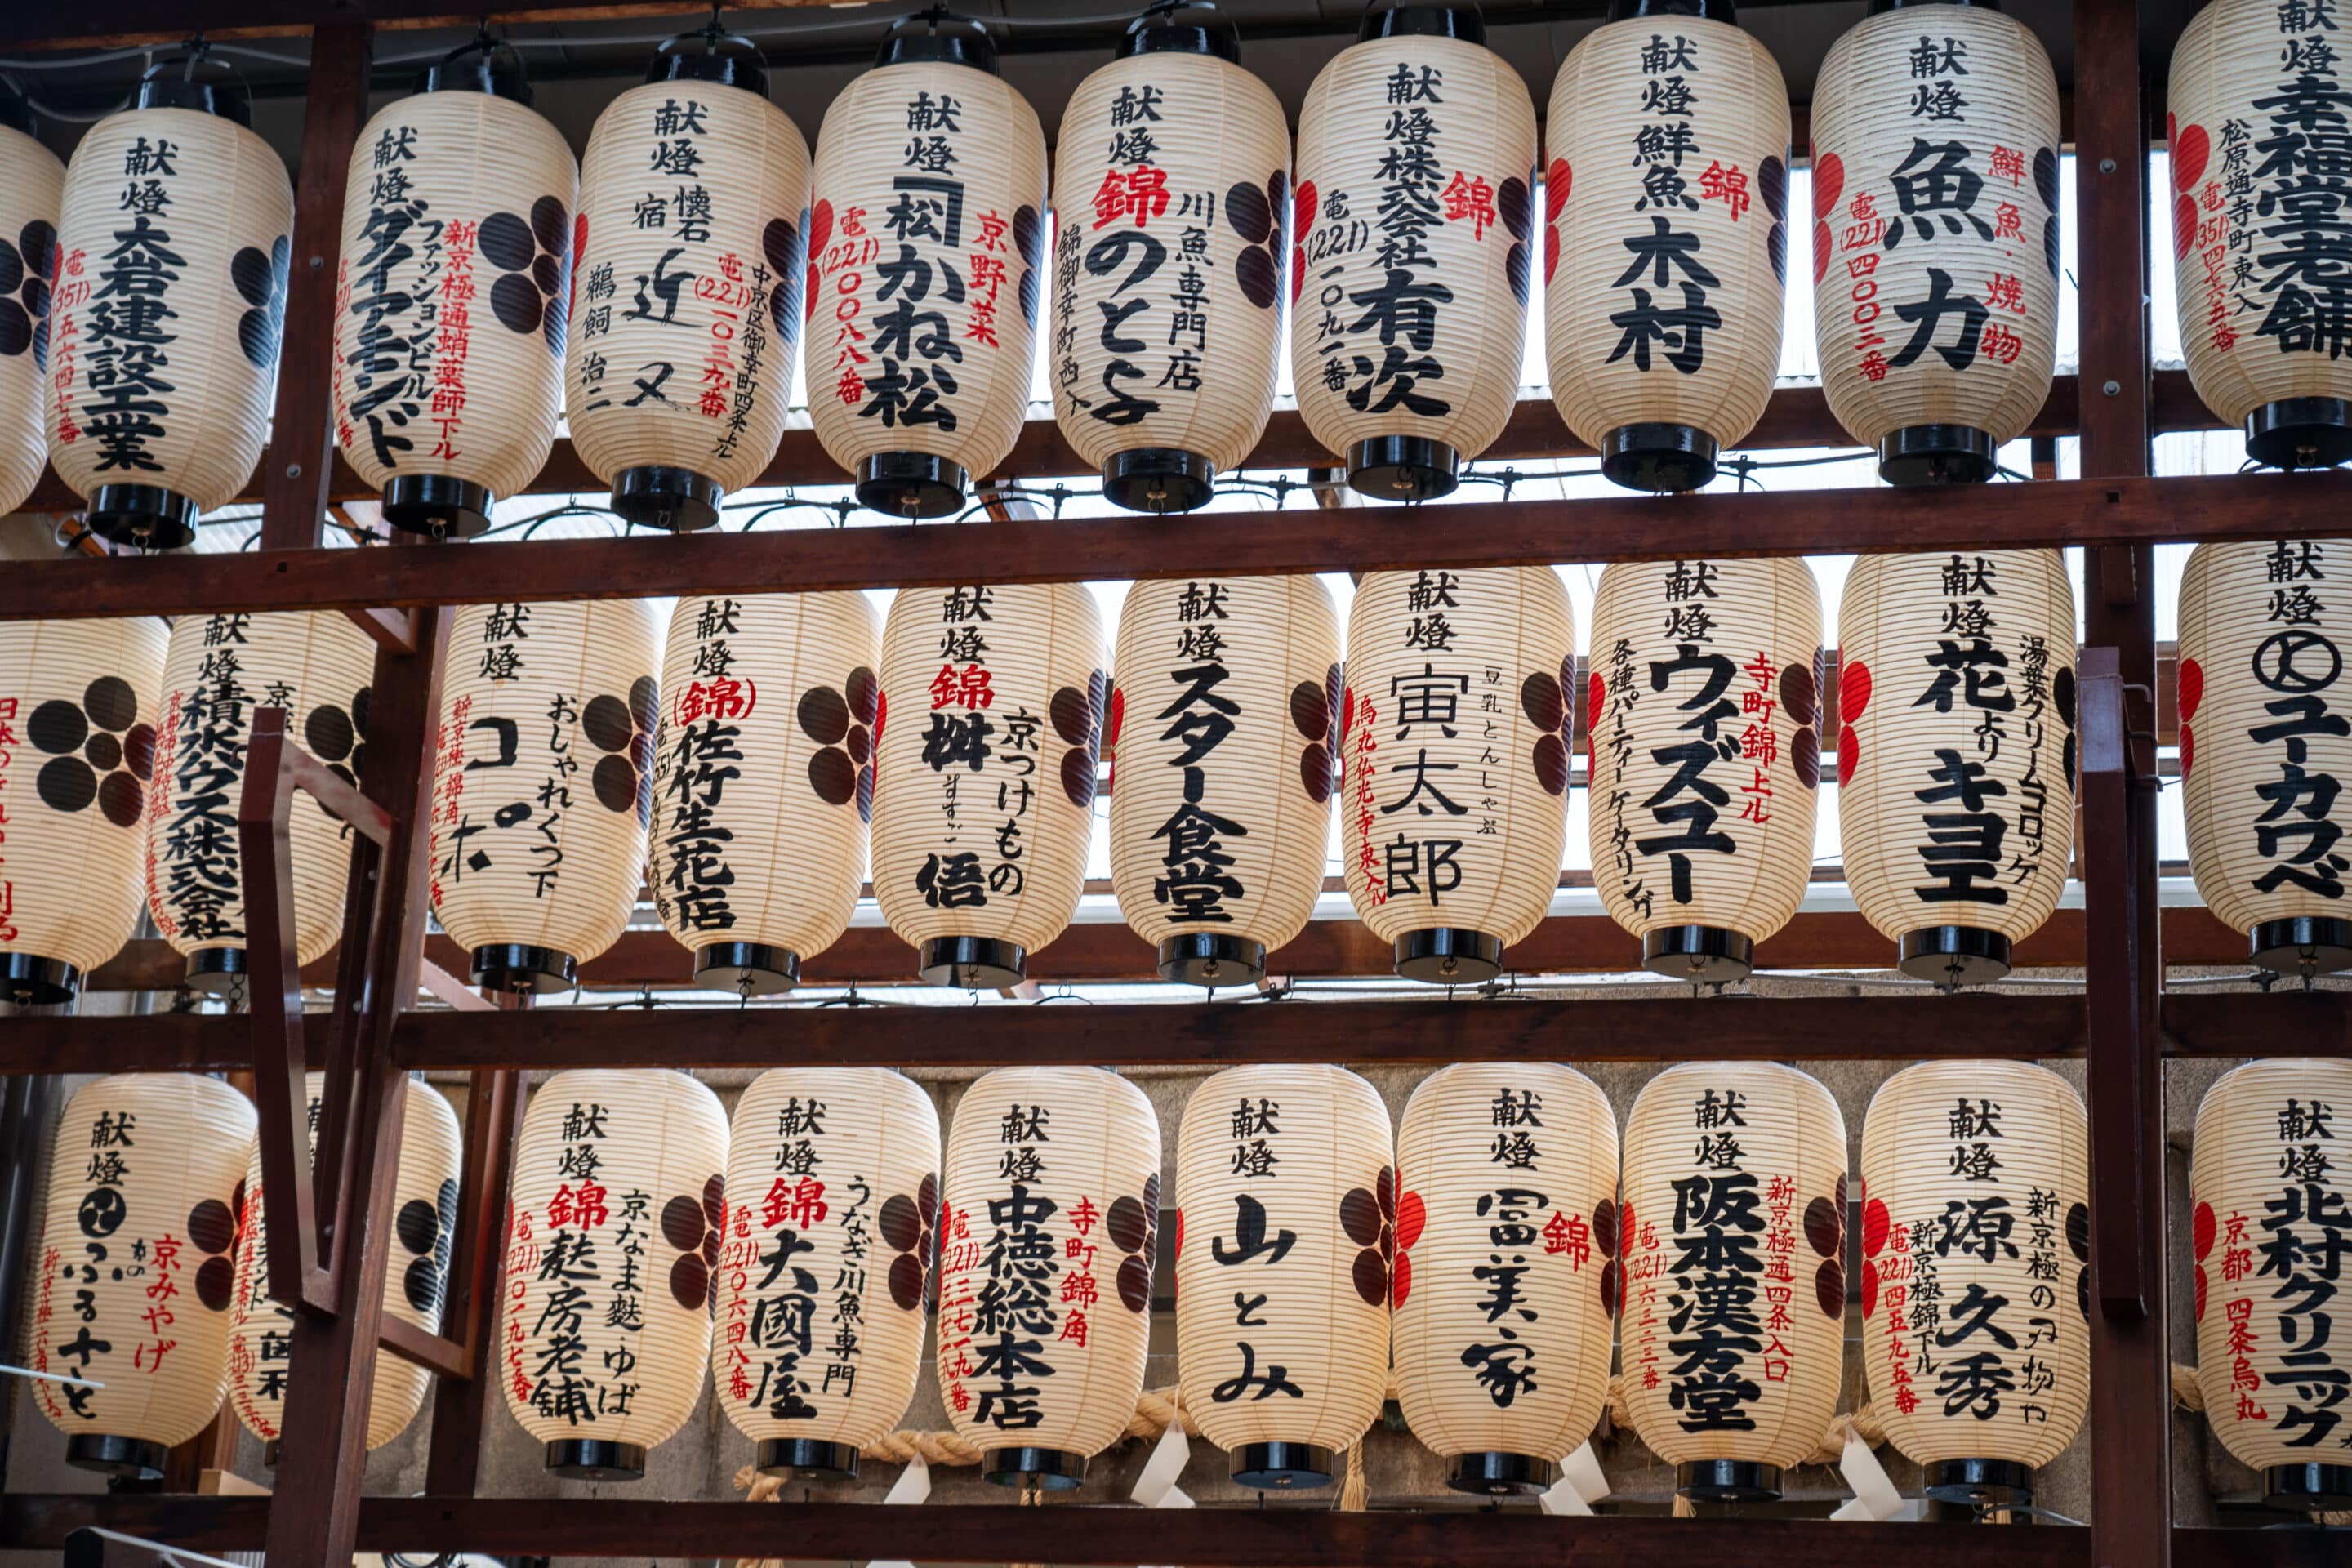 献燈 大岩建設工業
電(351)五六四七番
献燈 ダイアモンド
ファッションビル
新京極通蛸薬師下ル
献燈
懐石
宿
近又
鵜飼治二
電(221)一〇三九番
中京区御幸町四条上ル
献燈 かね松
京野菜
電(221)〇〇八八番
献燈 錦 のとよ
川魚専門店
錦御幸町西入
献燈 株式会社 有次
錦
電(221)一〇九一番
献燈 鮮魚 木村
錦
献燈 魚力
鮮魚・焼物
電(221)四〇〇三番
献燈 幸福堂老舗
松原通寺町東入
電(351)四七六五番
献燈 積水ハウス株式会社
献燈 コポ
おしゃれくつ下
新京極錦角
献燈 (錦) 佐竹生花店
献燈 錦 桝悟
ますご
京つけもの
献燈 スター食堂
献燈 寅太郎
豆乳とんしゃぶ
烏丸仏光寺東入ル
献燈 ウィズユー
寺町錦上ル
各種パーティーケータリング
献燈 花より キヨエ
湯葉クリームコロッケ
献燈 ユーカワベ
献燈
京みやげ
献燈 錦 麩房老舗
京なま麩・ゆば
電(221)〇一九七番
献燈 錦 大國屋
うなぎ川魚専門
電(221)〇六四八番
献燈 中徳総本店
寺町錦角
献燈 山とみ
献燈 冨美家
錦
献燈 阪本漢方堂
新京極通四条入口
電(221)六三二三番
献燈 源久秀
新京極の刃物や
新京極錦下ル
電(221)四五九五番
献燈 北村クリニック
京都・四条烏丸